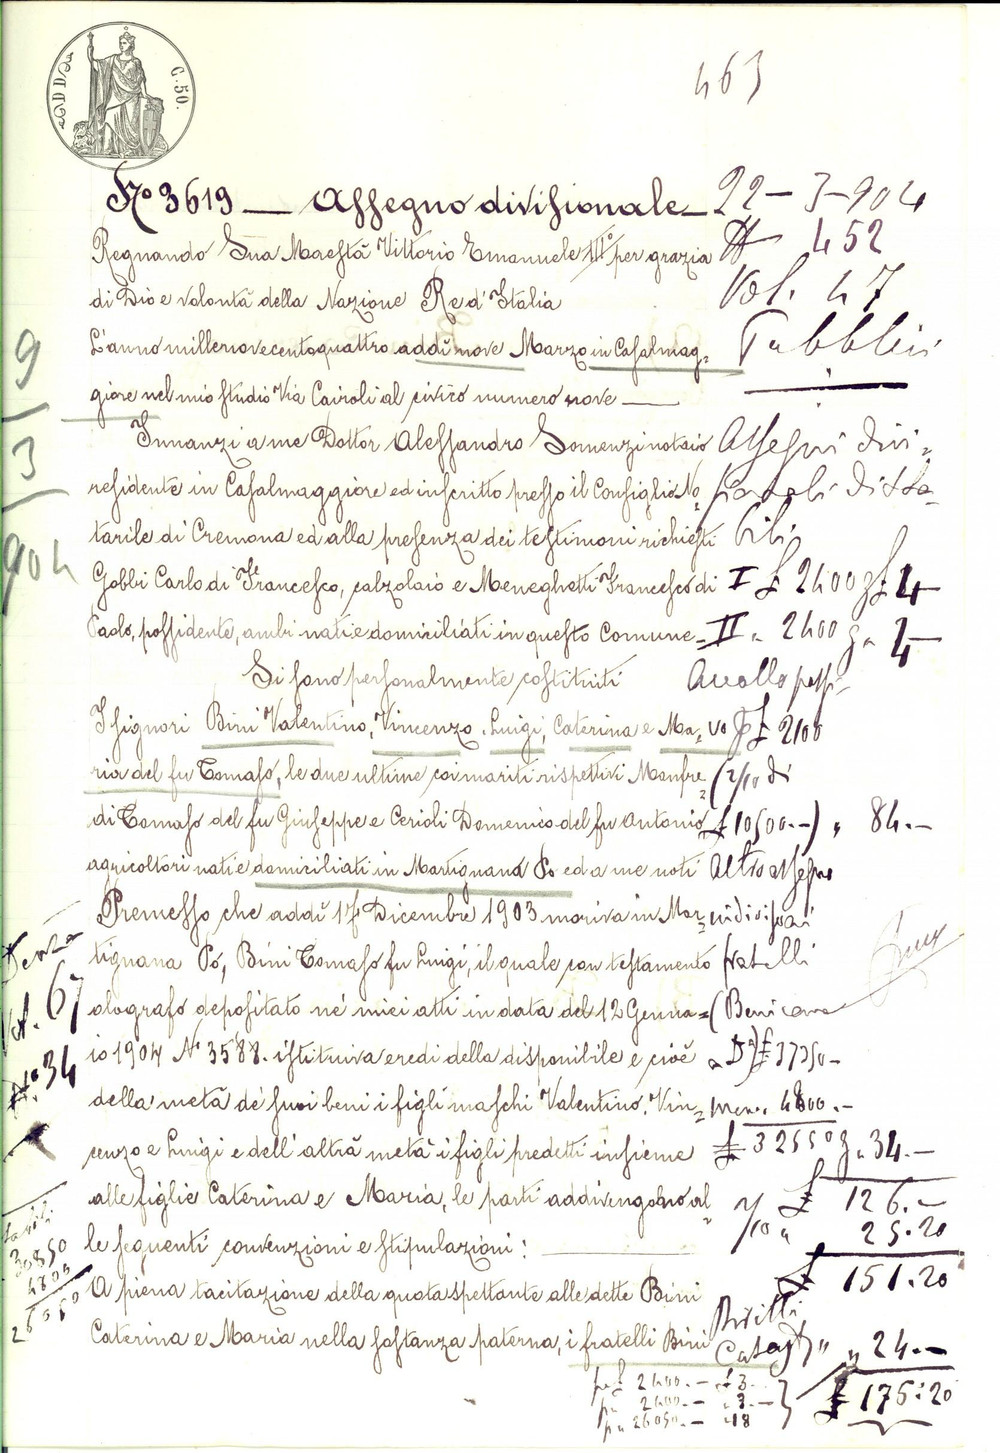 C. 50.
463
Nº 3619 — Assegno divisionale —
Regnando Sua Maestà Vittorio Emanuele IIIº per grazia
di Dio e volontà della Nazione Re d'Italia
L'anno millenovecentoquattro addì nove Marzo in Casalmag=
giore nel mio studio Via Cairoli al civico numero nove —
Innanzi a me Dottor Alessandro Somenzi notaio
residente in Casalmaggiore ed inscritto presso il Consiglio No=
tarile di Cremona ed alla presenza dei testimoni richiesti
Gobbi Carlo di Francesco, calzolaio e Meneghetti Francesco di
Paolo, possidente, ambi nati e domiciliati in questo Comune =
Si sono personalmente costituiti
I signori Bini Valentino, Vincenzo, Luigi, Caterina e Ma=
ria del fu Tomaso, le due ultime coi mariti rispettivi Manfre=
di Tomaso del fu Giuseppe e Cerioli Domenico del fu Antonio
agricoltori nati e domiciliati in Martignana Po ed a me noti
Premesso, che addì 17 Dicembre 1903 moriva in Mar=
tignana Po, Bini Tomaso fu Luigi, il quale con testamento
olografo depositato ne' miei atti in data del 12 Genna=
io 1904 Nº 3588. istituiva eredi della disponibile e cioè
della metà de' suoi beni i figli maschi Valentino, Vin=
cenzo e Luigi e dell'altra metà i figli predetti insieme
alle figlie Caterina e Maria, le parti addivengono al=
le seguenti convenzioni e stipulazioni: —
A piena tacitazione della quota spettante alle dette Bini
Caterina e Maria nella sostanza paterna, i fratelli Bini
22-3-904
# 452
Vol. 47
Pubblici
Assegni divi=
sionali
I £ 2400 £ 4
II " 2400 " 4—
Accollo passi=
vo £ 2100
(2/10 di
£ 10500.—) " 84.—
Altro assegno
indivisi ai
fratelli
£ 37350—
men. 4800.—
£ 32550 " 34.—
£ 126.—
/10 " 25.20
£ 151.20
Diritti
Catast " " 24.—
£ 175.20
£ 2400.— £ 3.—
2400.— " 3.—
26050.— " 18
9/3/904
67
Nº 34
30850
4800
26050